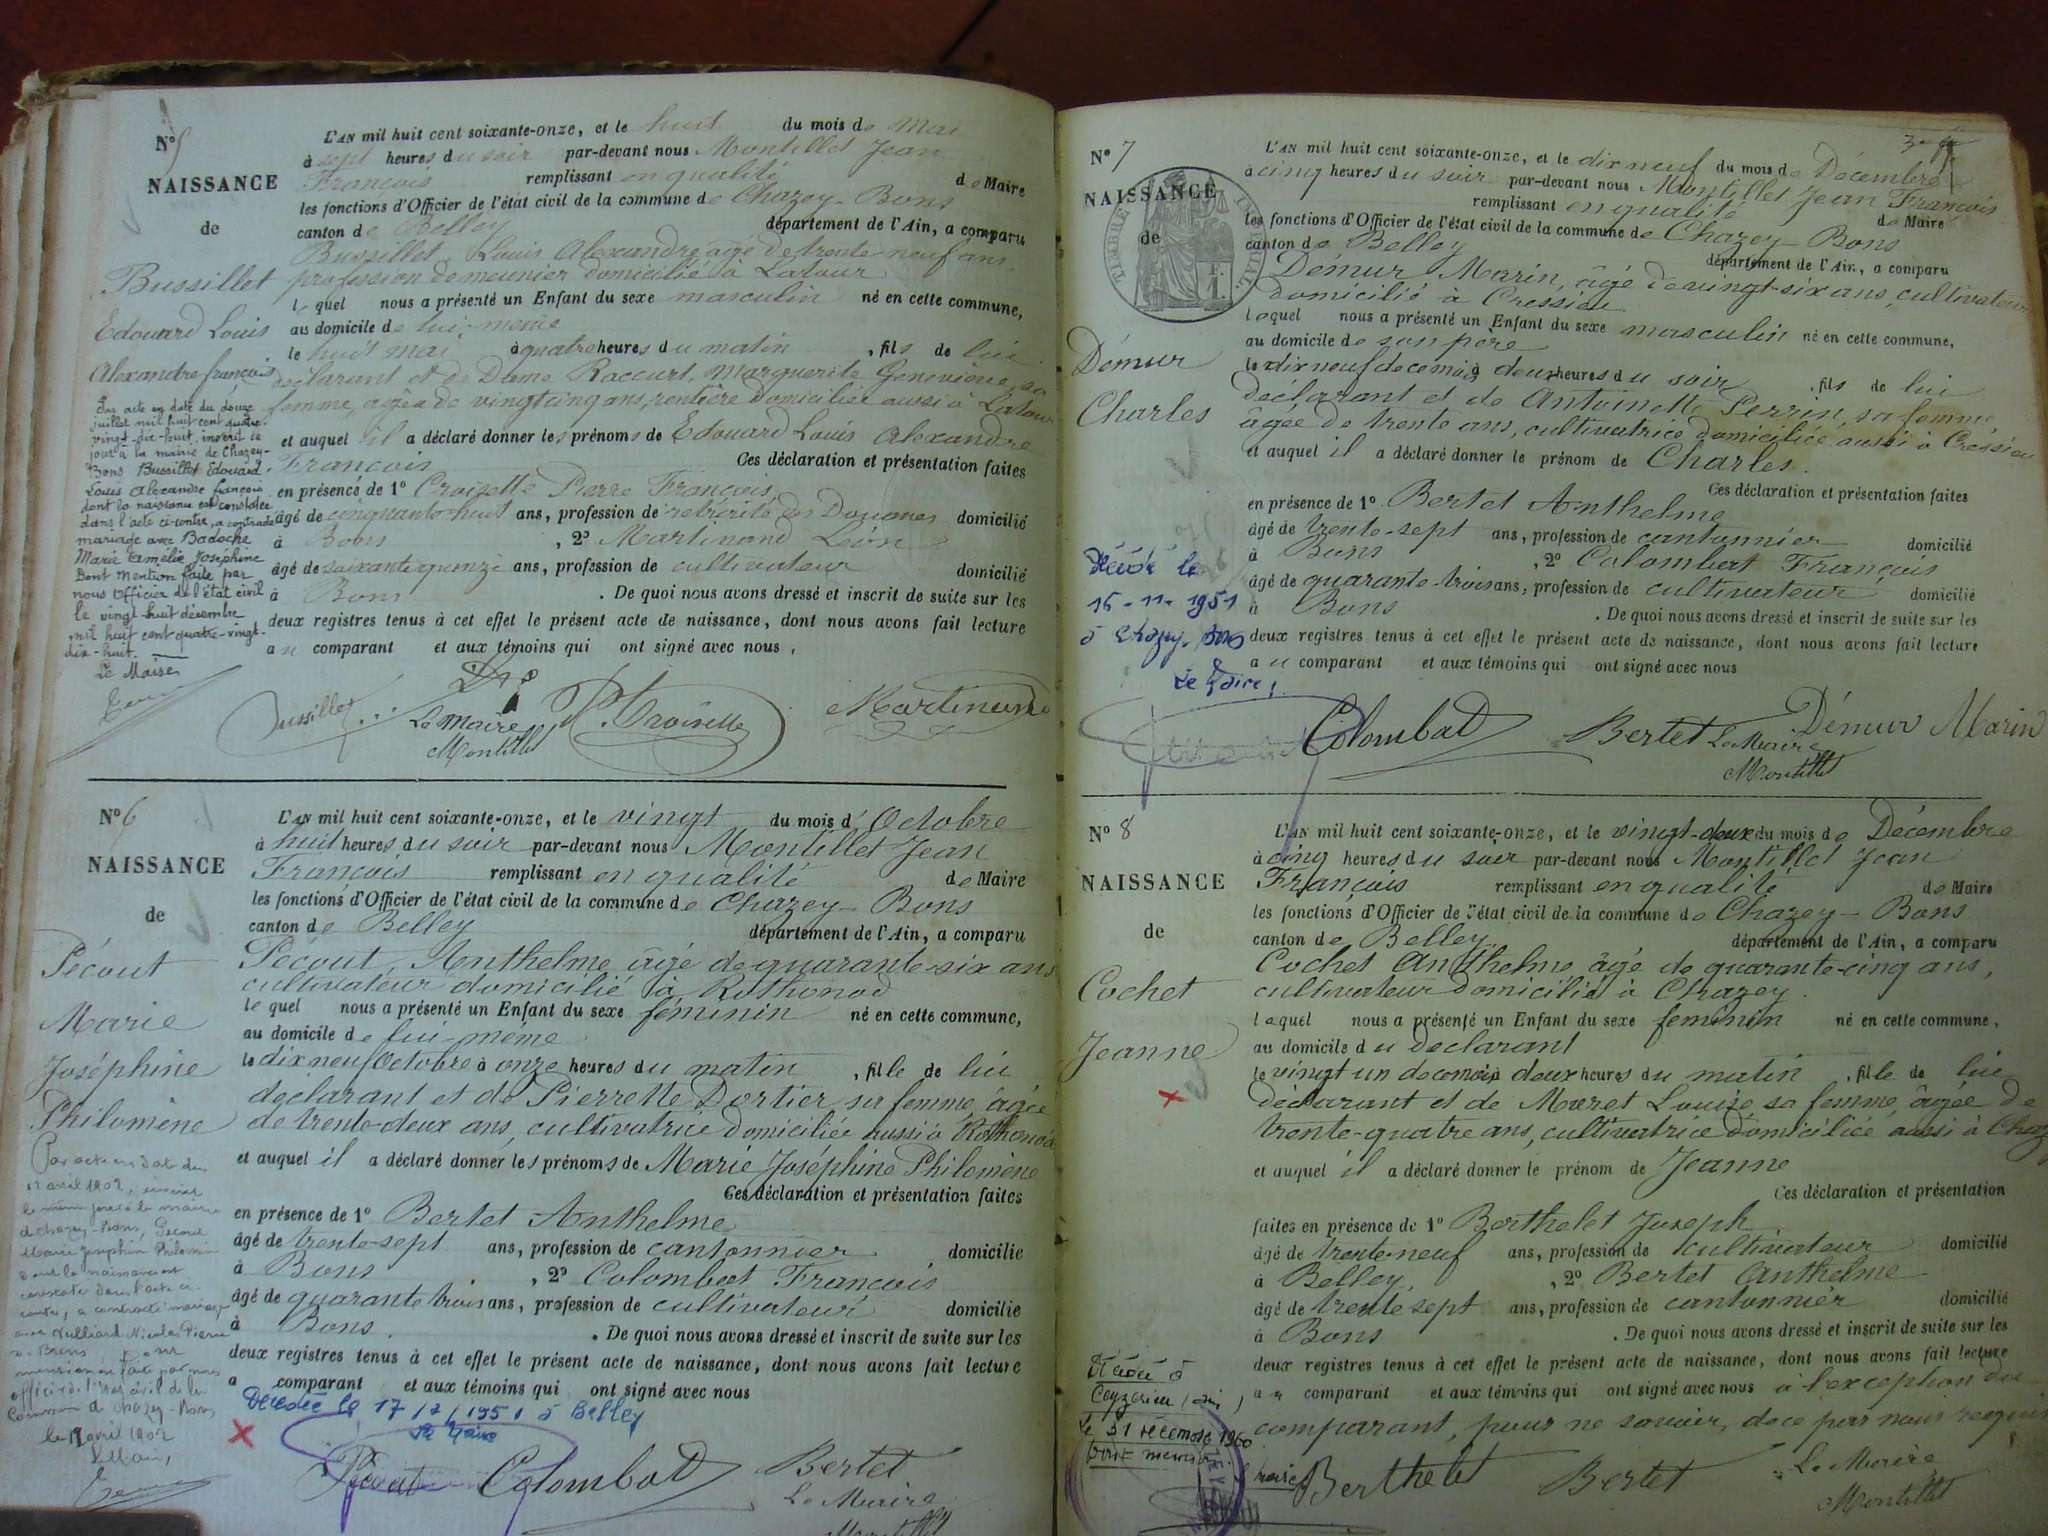 N° 5
NAISSANCE
de
Bussillet
Edouard Louis
Alexandre françois
Par acte en date du douze
juillet mil huit cent quatre-
vingt-dix-huit inscrit ce
jour à la mairie de Chazey-
Bons Bussillet Edouard
Louis Alexandre françois
dont la naissance est constatée
dans l'acte ci-contre, a contracté
mariage avec Badoche
Marie Amélie Joséphine
Dont mention faite par
nous Officier de l'état civil
le vingt-huit décembre
mil huit cent quatre-vingt-
dix-huit.
Le Maire
L'AN mil huit cent soixante-onze, et le huit du mois de Mai
à sept heures du soir par-devant nous Montillet Jean
François remplissant en qualité de Maire
les fonctions d'Officier de l'état civil de la commune de Chazey-Bons
canton de Belley département de l'Ain, a comparu
Bussillet Louis Alexandre âgé de trente neuf ans,
profession de meunier domicilié à Latour
lequel nous a présenté un Enfant du sexe masculin né en cette commune,
au domicile de lui-même
le huit mai à quatre heures du matin, fils de lui
déclarant et de Dame Raccurt, Marguerite Geneviève, sa
femme, agée de vingt cinq ans, rentière domiciliée aussi à Latour
et auquel il a déclaré donner les prénoms de Edouard Louis Alexandre
François Ces déclaration et présentation faites
en présence de 1° Croizette Pierre François,
âgé de cinquante-huit ans, profession de retraité des Douanes domicilié
à Bons, 2° Martinand Léon
âgé de soixante quinze ans, profession de cultivateur domicilié
à Bons. De quoi nous avons dressé et inscrit de suite sur les
deux registres tenus à cet effet le présent acte de naissance, dont nous avons fait lecture
au comparant et aux témoins qui ont signé avec nous,
Bussillet Le Maire Montillet P. Croizette Martinand
N° 6
NAISSANCE
de
Pécout
Marie
Joséphine
Philomène
Par acte en date du
12 avril 1902, inscrit
le même jour à la mairie
de Chazey-Bons, Pécout
Marie Joséphine Philomène
dont la naissance est
constatée dans l'acte ci-
contre, a contracté mariage
avec Nicolas Pierre
mention faite par nous
officier de l'état civil de la
commune de Chazey-Bons,
le avril 1902
Le Maire,
L'AN mil huit cent soixante-onze, et le vingt du mois d'Octobre
à huit heures du soir par-devant nous Montillet Jean
François remplissant en qualité de Maire
les fonctions d'Officier de l'état civil de la commune de Chazey-Bons
canton de Belley département de l'Ain, a comparu
Pécout, Anthelme âgé de quarante-six ans
cultivateur domicilié à Rothonod
lequel nous a présenté un Enfant du sexe féminin né en cette commune,
au domicile de lui-même
le dix neuf Octobre à onze heures du matin, fille de lui
déclarant et de Pierrette Dortier sa femme, âgée
de trente-deux ans, cultivatrice domiciliée aussi à Rothonod
et auquel il a déclaré donner les prénoms de Marie Joséphine Philomène
Ces déclaration et présentation faites
en présence de 1° Bertet Anthelme
âgé de trente-sept ans, profession de cantonnier domicilié
à Bons, 2° Colombat François
âgé de quarante trois ans, profession de cultivateur domicilié
à Bons. De quoi nous avons dressé et inscrit de suite sur les
deux registres tenus à cet effet le présent acte de naissance, dont nous avons fait lecture
a comparant et aux témoins qui ont signé avec nous
Décédée le 17/2/1951 à Belley
Le Maire
Pécout Colombat Bertet
Le Maire
Montillet
N° 7
NAISSANCE
de
TIMBRE IMPÉRIAL
Démur
Charles
Décédé le
15-11-1951
à Chazey-Bons
Le Maire,
L'AN mil huit cent soixante-onze, et le dix neuf du mois de Décembre
à cinq heures du soir par-devant nous Montillet Jean François
remplissant en qualité de Maire
les fonctions d'Officier de l'état civil de la commune de Chazey-Bons
canton de Belley département de l'Ain, a comparu
Démur Marin, âgé de vingt-six ans, cultivateur
domicilié à Cressieu
lequel nous a présenté un Enfant du sexe masculin né en cette commune,
au domicile de son père
le dix neuf de ce mois à deux heures du soir, fils de lui
déclarant et de Antoinette Perrin, sa femme,
âgée de trente ans, cultivatrice domiciliée aussi à Cressieu
et auquel il a déclaré donner le prénom de Charles.
Ces déclaration et présentation faites
en présence de 1° Bertet Anthelme
âgé de trente-sept ans, profession de cantonnier domicilié
à Bons, 2° Colombat François
âgé de quarante-trois ans, profession de cultivateur domicilié
à Bons. De quoi nous avons dressé et inscrit de suite sur les
deux registres tenus à cet effet le présent acte de naissance, dont nous avons fait lecture
au comparant et aux témoins qui ont signé avec nous
Colombat Bertet Démur Marin
Le Maire
Montillet
N° 8
NAISSANCE
de
Cochet
Jeanne
Décédée à
Ceyzérieu (Ain)
le 31 décembre 1960
pour mention
L'AN mil huit cent soixante-onze, et le vingt-deux du mois de Décembre
à cinq heures du soir par-devant nous Montillet Jean
François remplissant en qualité de Maire
les fonctions d'Officier de l'état civil de la commune de Chazey-Bons
canton de Belley département de l'Ain, a comparu
Cochet Anthelme, âgé de quarante-cinq ans,
cultivateur domicilié à Chazey.
lequel nous a présenté un Enfant du sexe féminin né en cette commune,
au domicile du déclarant
le vingt un de ce mois à deux heures du matin, fille de lui
déclarant et de Maret Louise sa femme, âgée de
trente-quatre ans, cultivatrice domiciliée aussi à Chaz
et auquel il a déclaré donner le prénom de Jeanne
Ces déclaration et présentation
faites en présence de 1° Berthelet Joseph
âgé de trente-neuf ans, profession de cultivateur domicilié
à Belley, 2° Bertet Anthelme
âgé de trente sept ans, profession de cantonnier domicilié
à Bons. De quoi nous avons dressé et inscrit de suite sur les
deux registres tenus à cet effet le présent acte de naissance, dont nous avons fait lecture
au comparant et aux témoins qui ont signé avec nous à l'exception du
comparant, pour ne savoir, de ce par nous requis
Berthelet Bertet Le Maire
Montillet